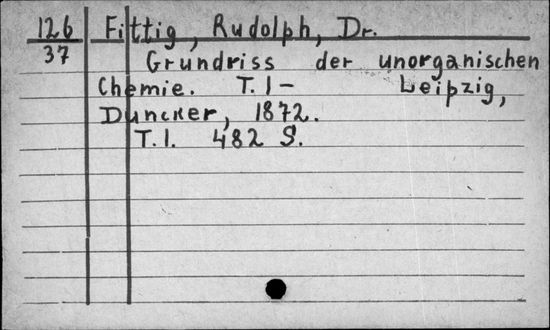 126 Fittig, Rudolph, Dr.
37 Grundriss der unorganischen
Chemie. T. I – Leipzig,
Duncker, 1872.
T. I. 482 S.